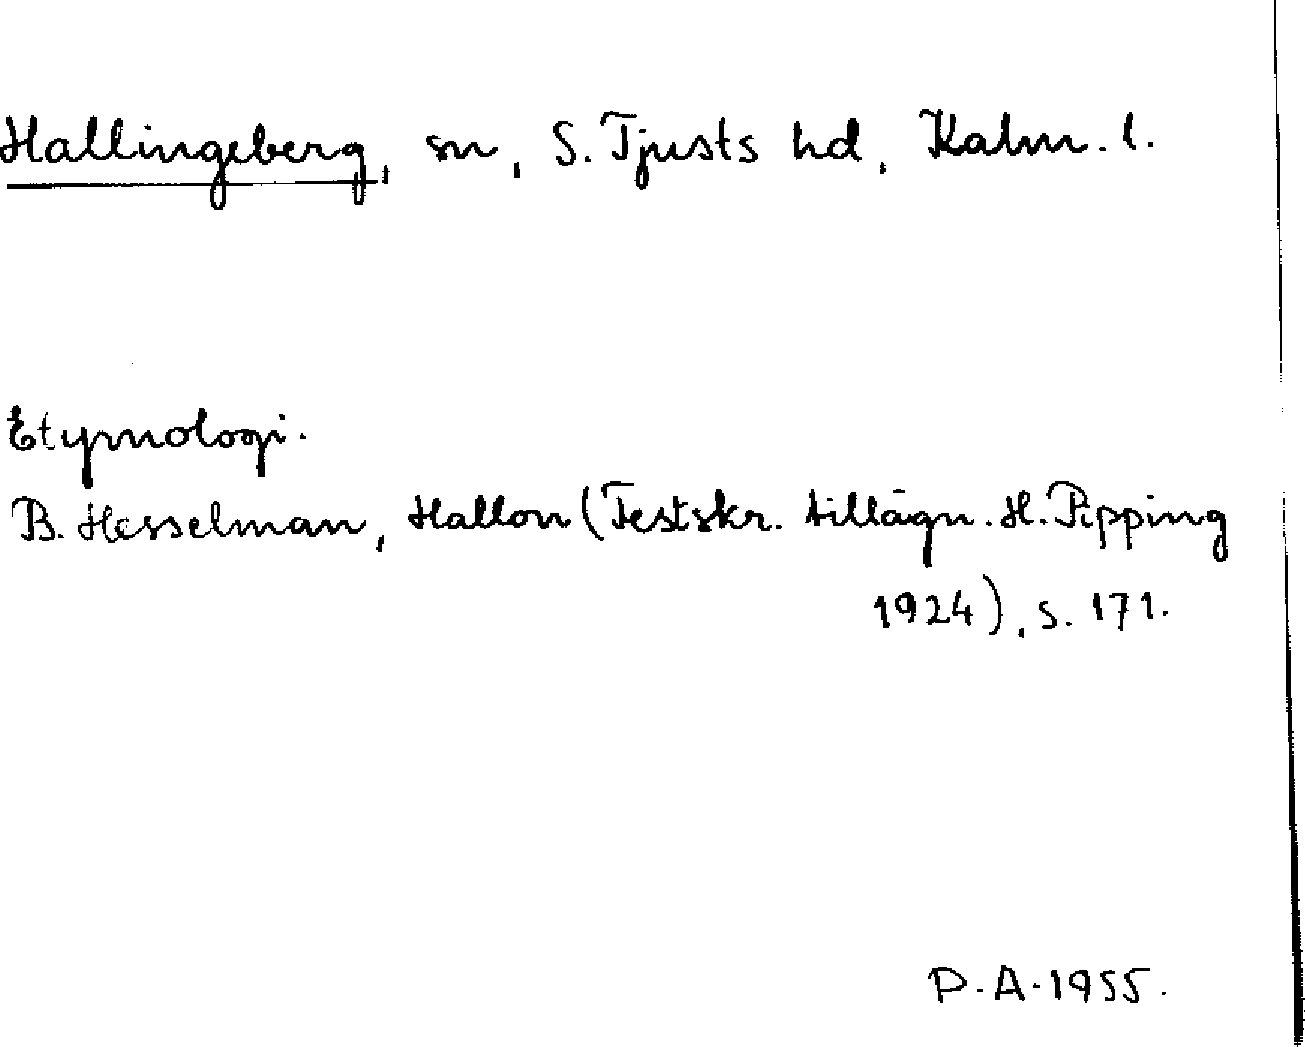 Hallingeberg, sn, S. Tjusts hd, Kalm. l.
Etymologi.
B. Hesselman, Hallon (Festskr. tillägn. H. Pipping
1924), s. 171.
P.A. 1955.